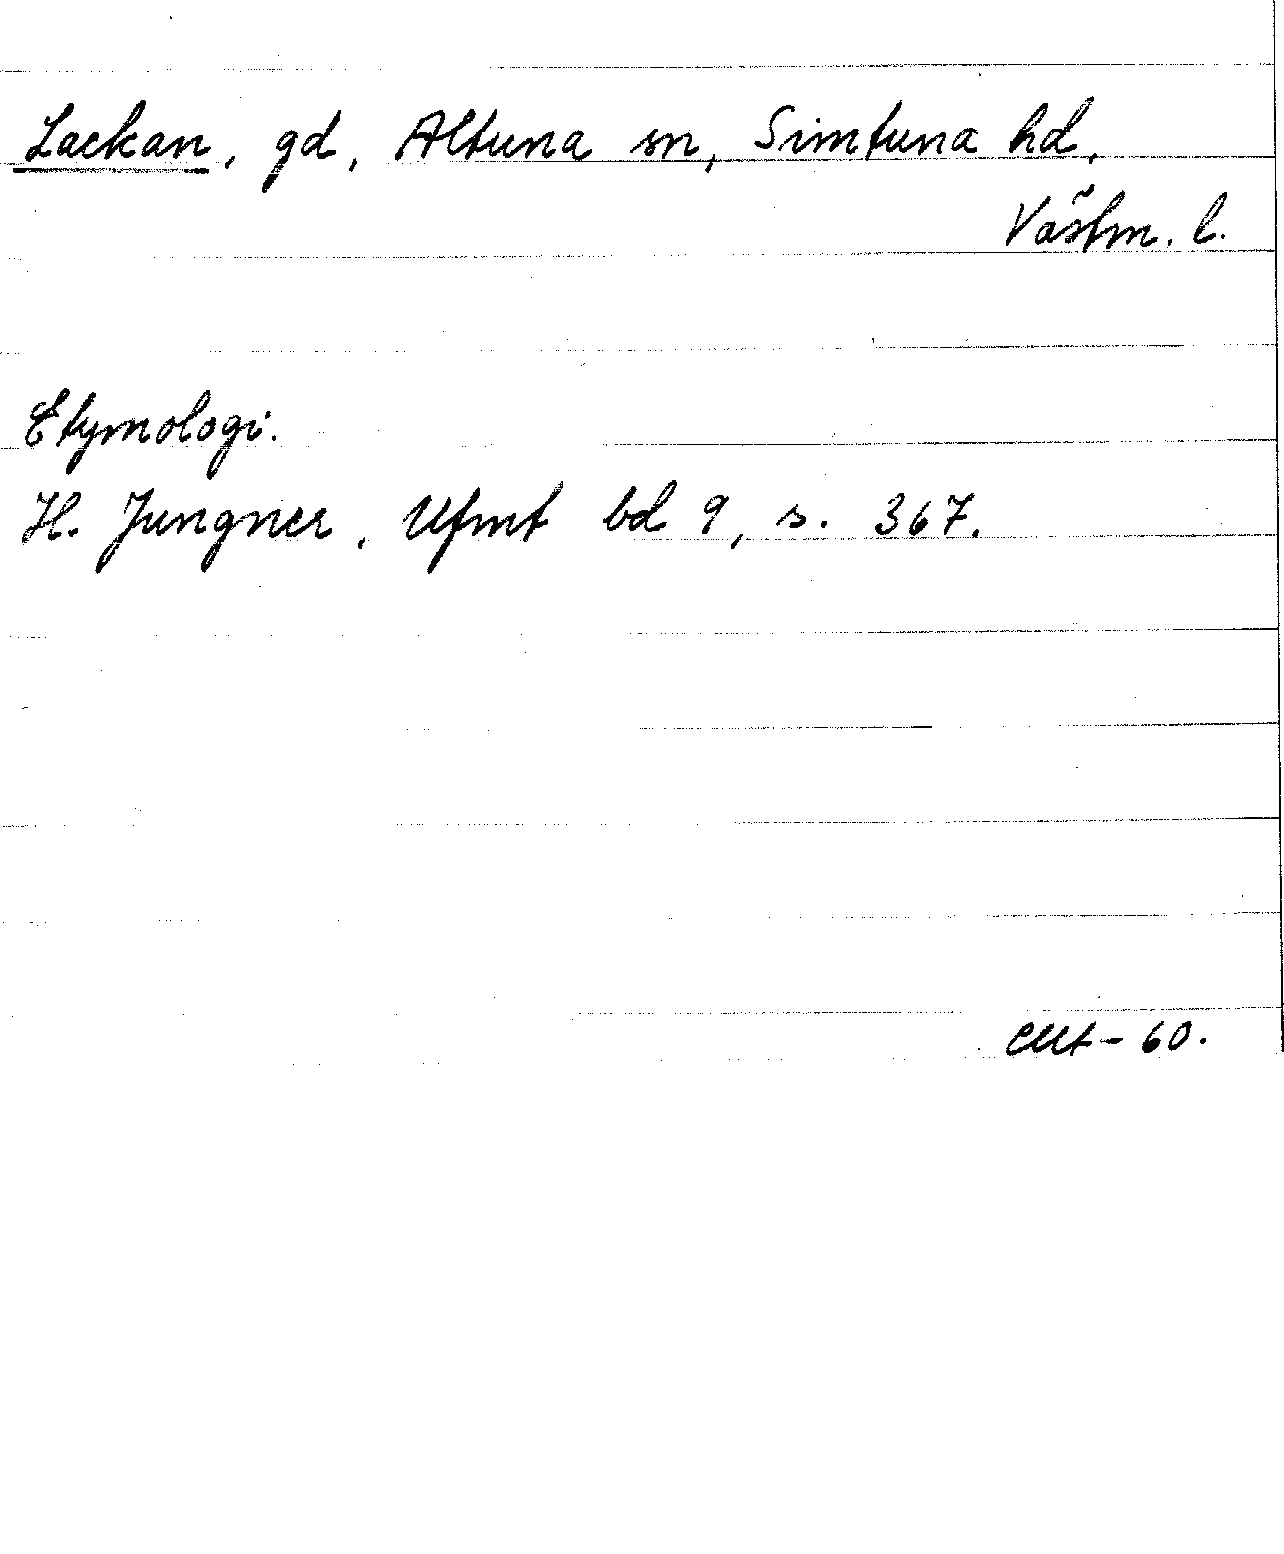 Lackan, gd, Altuna sn, Simtuna hd,
Västm. l.
Etymologi.
H. Jungner, Ufmt bd 9, s. 367.
- 60.